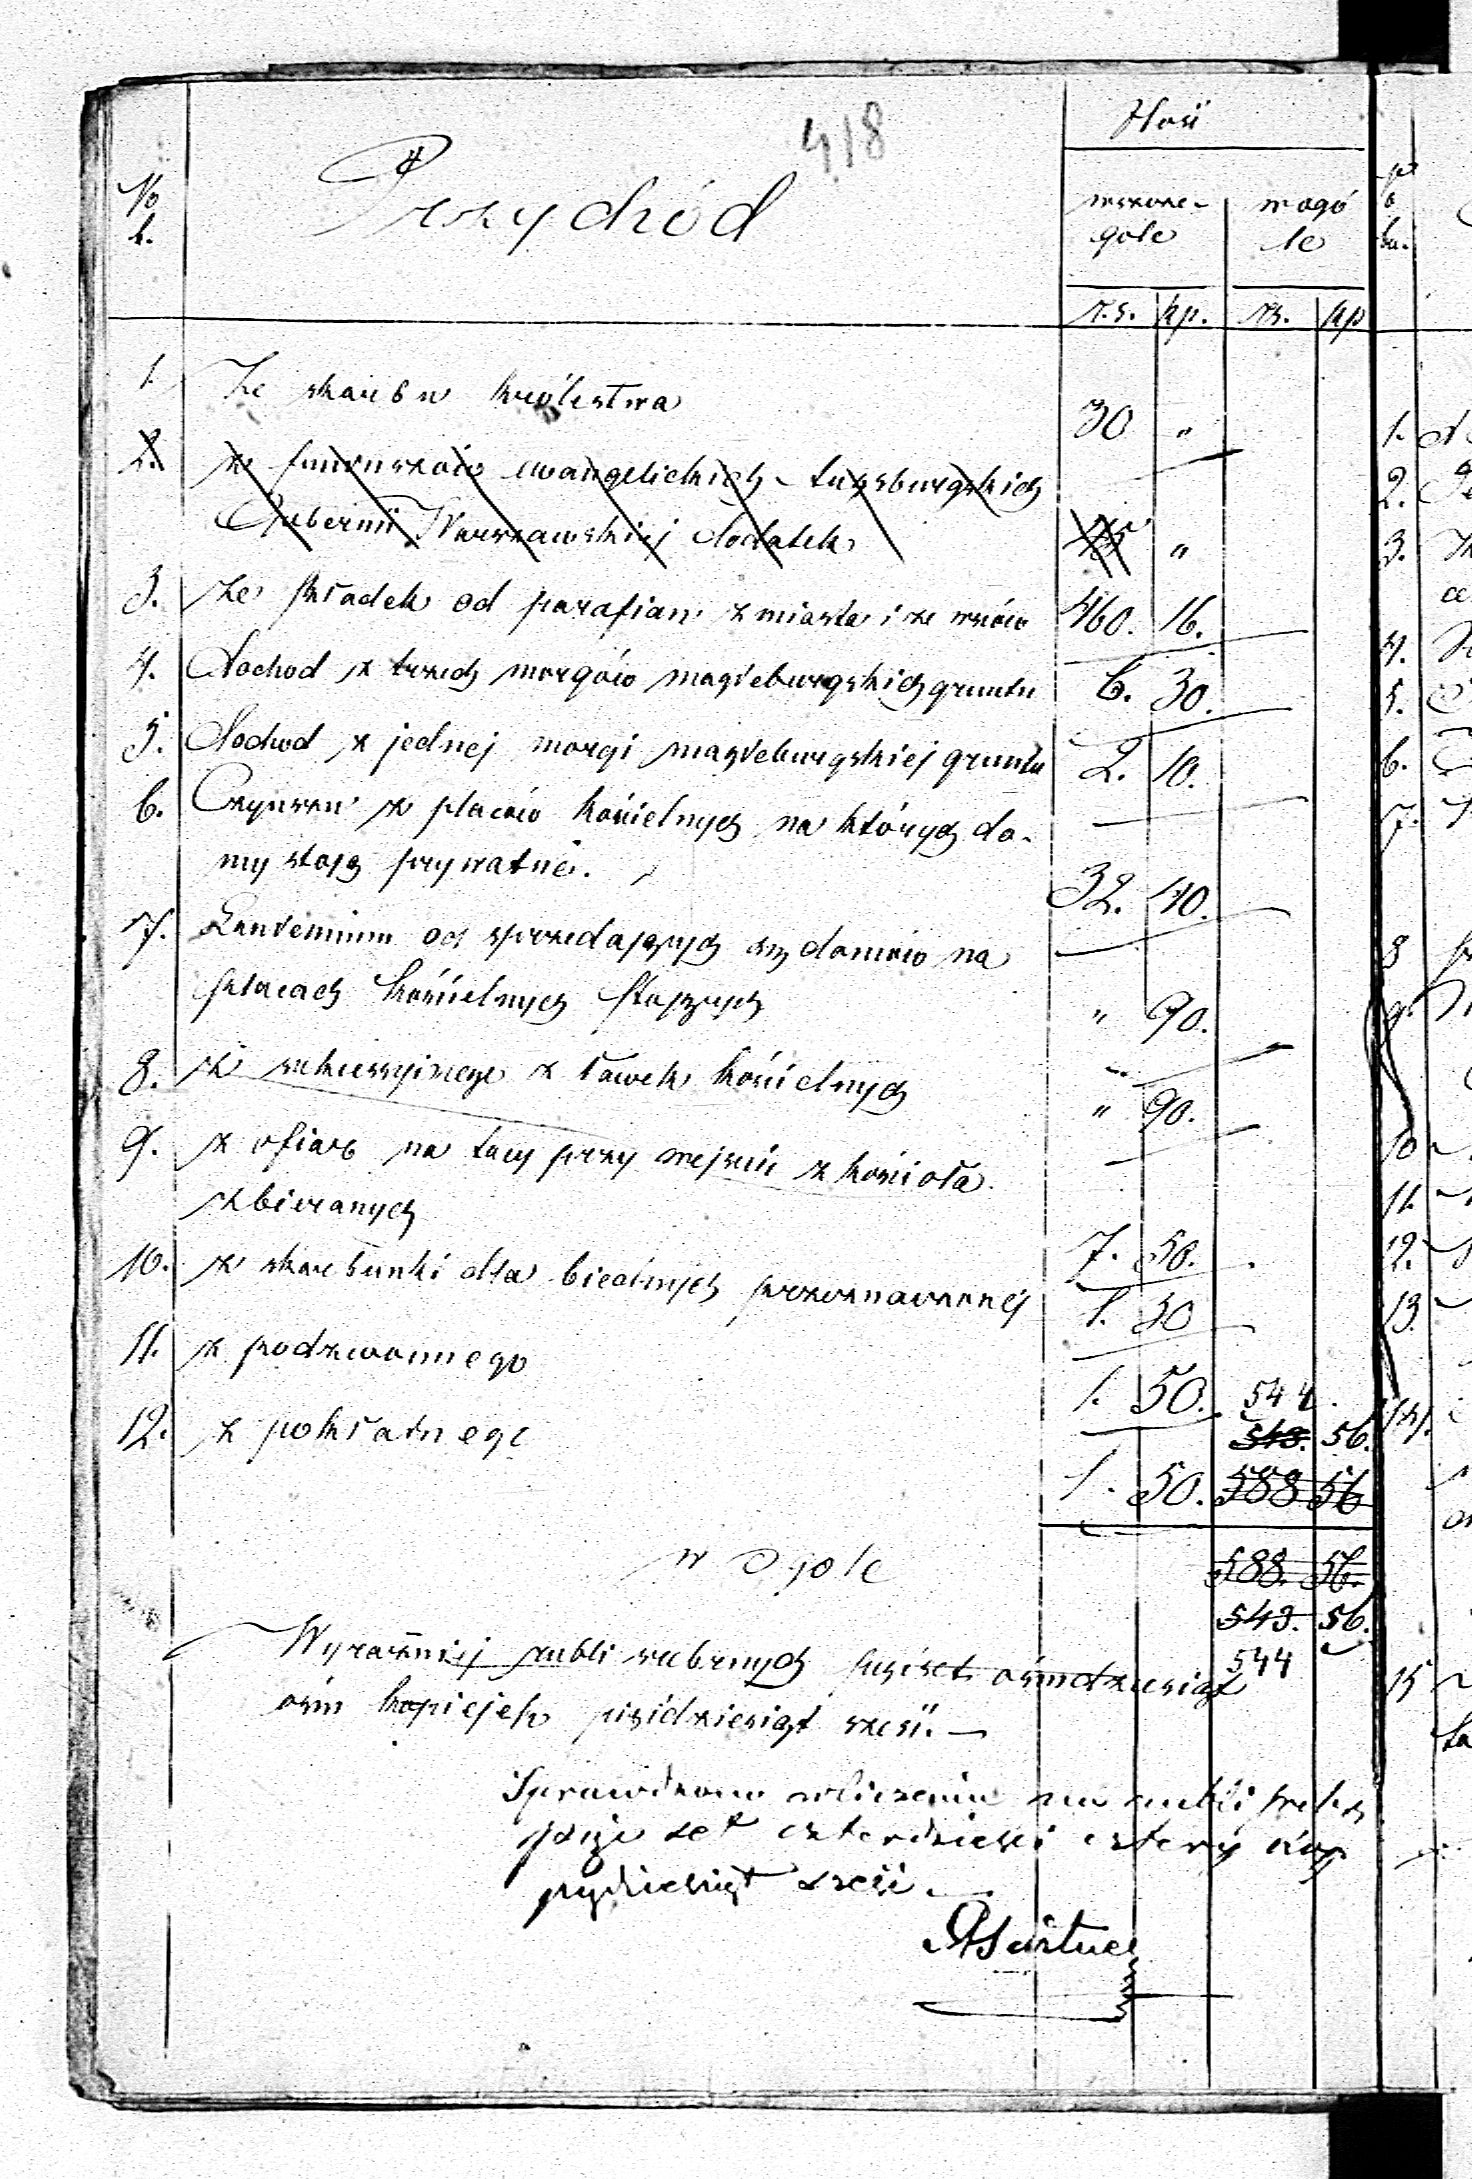 418
Ilość
No
b.
Przychód
wszcze- w ogó
góle le
r.s. kp. rs. kp
1. Ze skarbu królestwa 30 "
2. z funduszów ewangelicko-Augsburgskich
Gubernii Warszawskiej dodatek 45 "
3. ze składek od parafian z miasta i ze wsiów 460. 16.
4. Dochod z trzech morgów magdeburgskich gruntu 6. 30.
5. Dochod z jednej morgi magdeburgskiej gruntu 2. 10.
6. Czynszu z placów kościelnych na których do-
my stoją prywatne. 32. 40.
7. Laudemium od sprzedających się domów na
placach kościelnych stojących " 90.
8. z sukcessyjnego z ławek kościelnych " 90.
9. z ofiar na tacy przy wejściu z kościoła
zbieranych 7. 50.
10. z skarbunki dla biednych przeznaczonej 1. 30
11. z podzwonnego 1. 50. 544.
12. z pokładnego 543. 56.
1. 50. 588 56
w Ogóle 588. 56.
543. 56.
Wyraźniej rubli srebrnych pięćset ośmdziesiąt 544
ośm kopiejek pięćdziesiąt sześć. —
Sprawdzono na rubli
pięć set czterdzieści cztery kop
pięćdziesiąt sześć. —